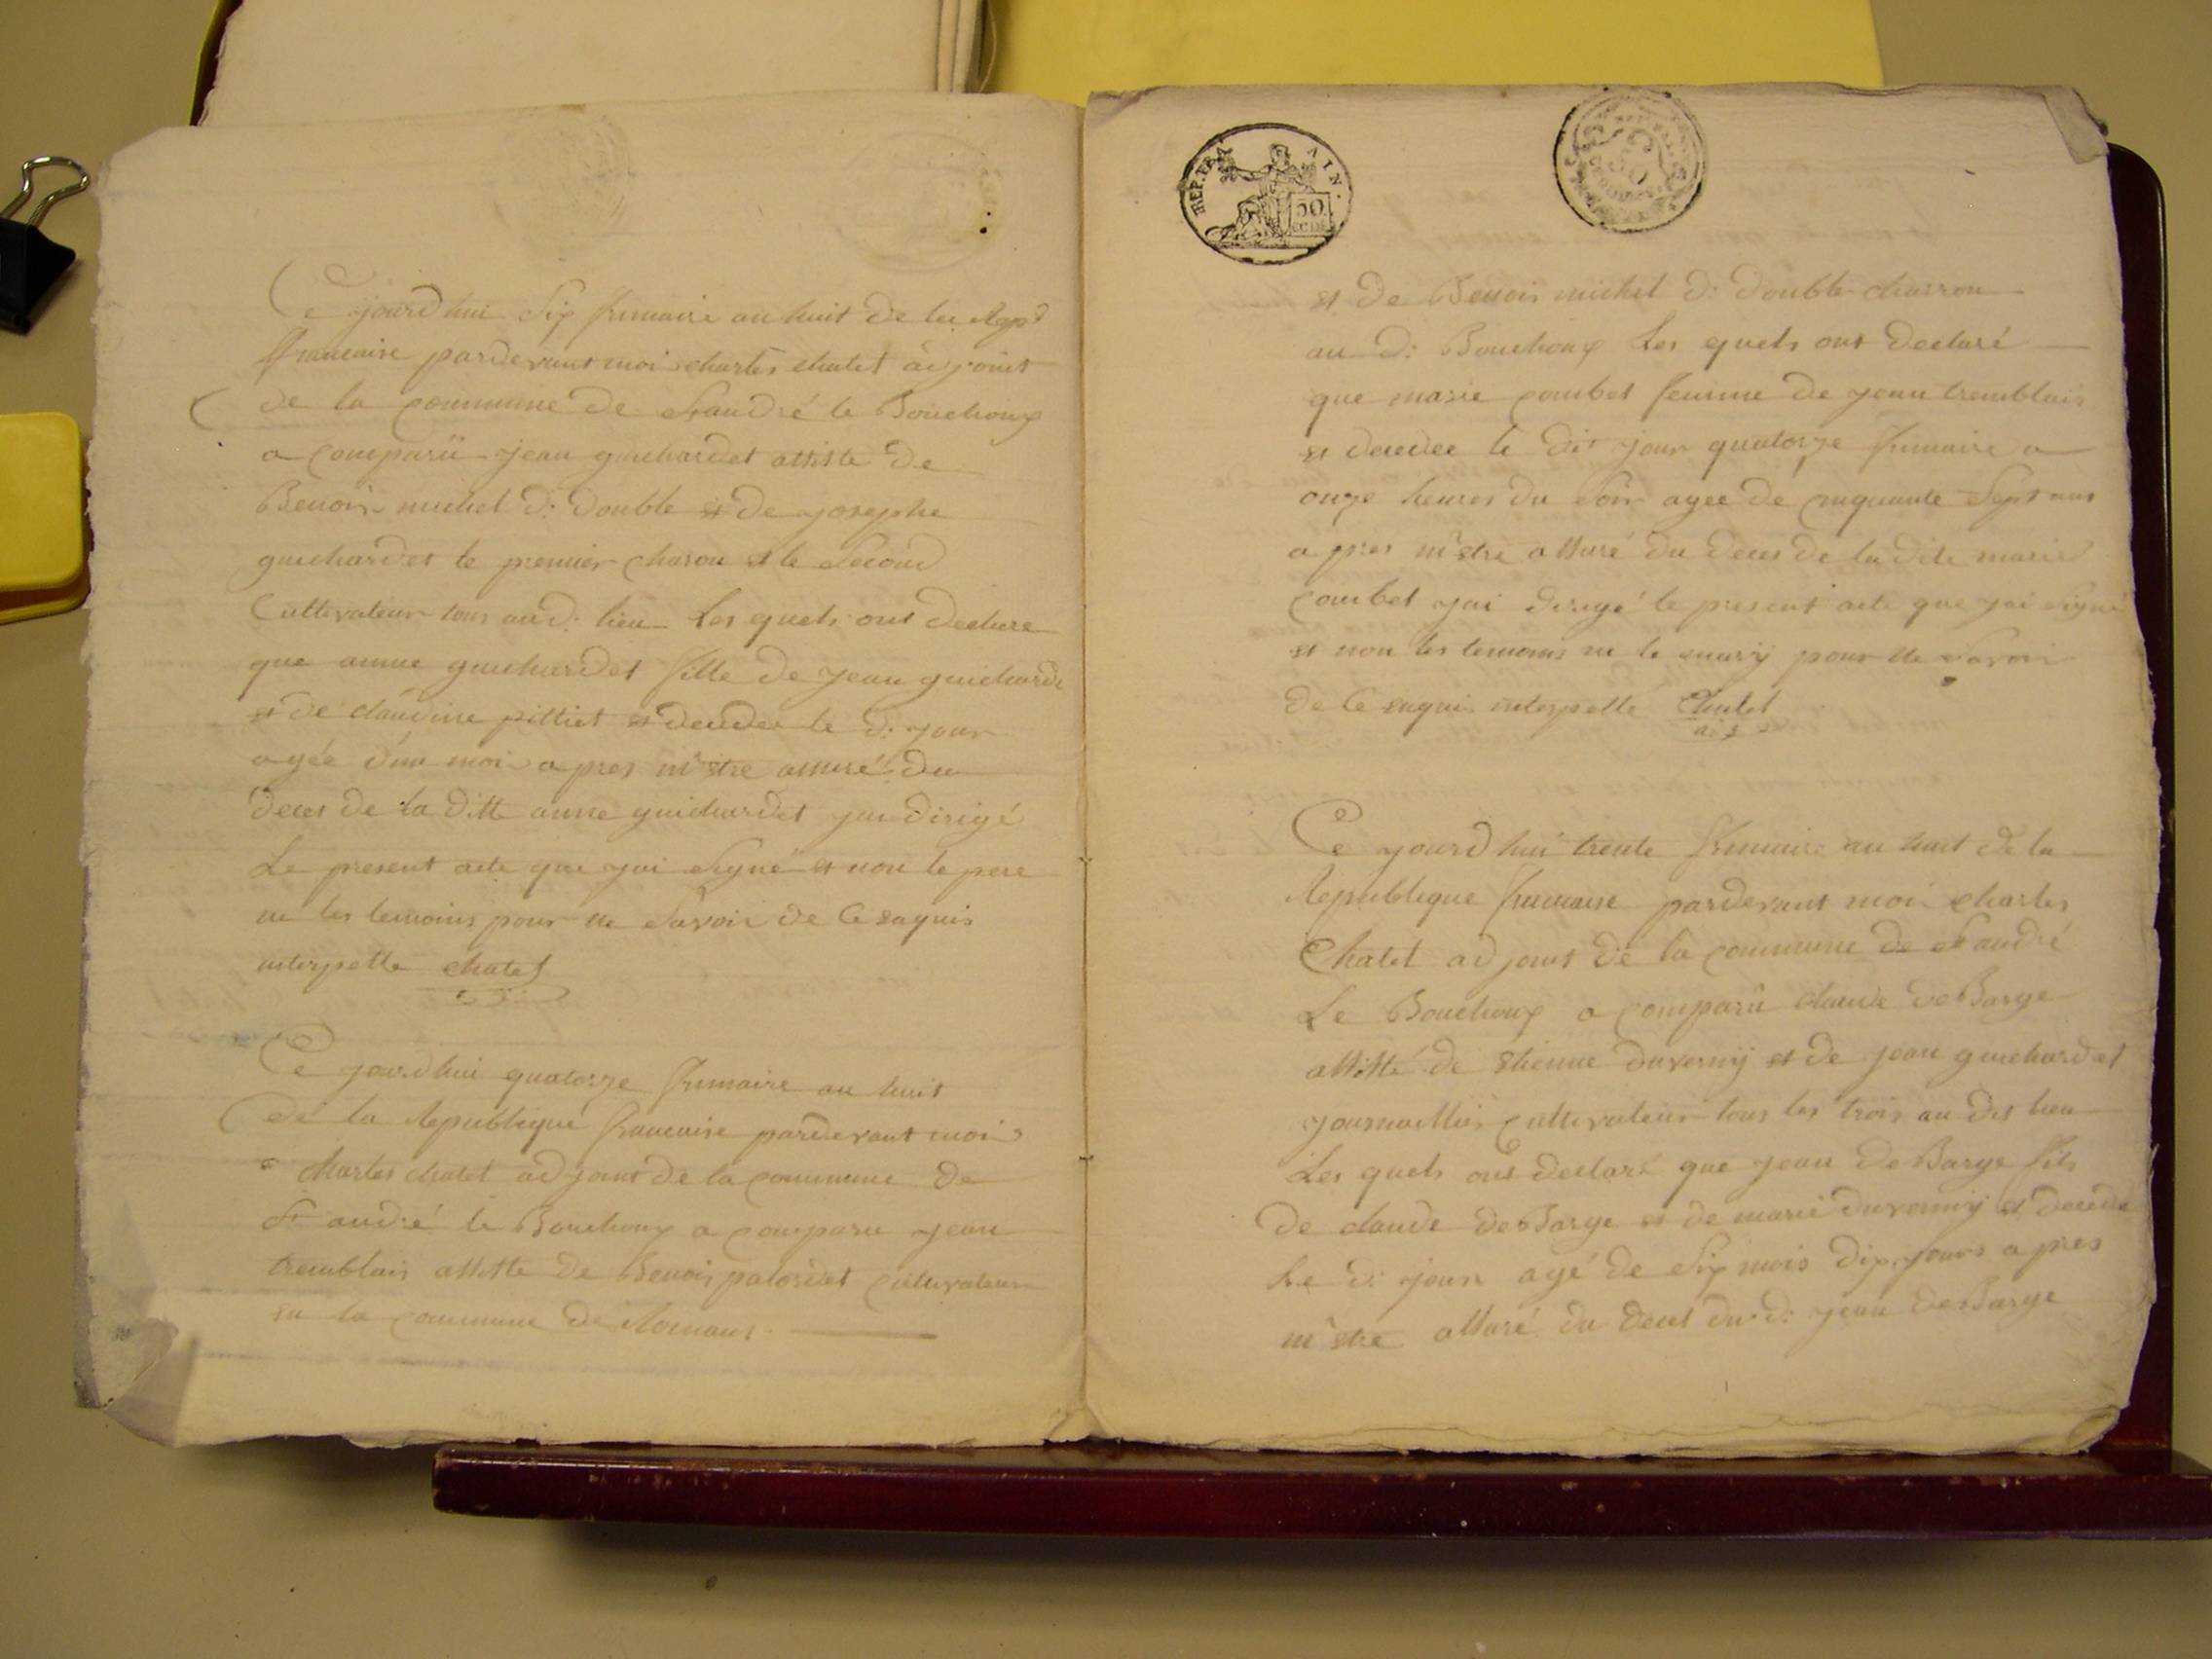 Ce jourdhui Six frimaire an huit de la Rep.
francaise pardevant moi charles chatel adjoint
de la commune de St andré le Bouchoux
a comparü jean guichardet assisté de
Benoir michel d: double et de josephe
guichardet le premier charon et le Second
Cultivateur tous aud: lieu Les quels ont declare
que anne guichardet fille de jean guichard
et de claudine pittiet et decedee le d: jour
agée d'un moi apres m'être assuré du
deces de la ditte anne guichardet jai dirigé
Le present acte que jai Signé et non le pere
ni les temoins pour ne Savoir de Ce enquis
interpelle chatel
Ce jourdhui quatorze frimaire an huit
de la Republique francaise pardevant moi
charles chatel adjoint de la commune de
St andré le Bouchoux a comparu jean
tremblais assitte de Benoir palordet cultivateur
en la commune de Romans
REP. FRA 50 CEN
50
et de Benoir michel d: double charron
au d: Bouchoux Les quels ont declaré
que marie combet femme de jean tremblais
et decedee le dit jour quatorze frimaire a
onze heures du Soir agee de cinquante Sept ans
apres m'être assuré du deces de la dite marie
combet jai dirigé le present acte que jai signé
et non les temoins ni le mary pour ne Savoir
de Ce enquis interpelle Chatel
adj
Ce jourdhui trente frimaire an huit de la
Republique francaise pardevant moi charles
Chatel adjoint de la commune de St andré
Le Bouchoux a comparû claude deBarge
assitté de Etienne duverny et de jean guichardet
journallier cultivateur tous les trois au dit lieu
Les quels ont declaré que jean deBarge fils
de claude deBarge et de marie duverny et decede
Le d: jour agé de Six mois dix jours apres
m'être assuré du deces dud: jean deBarge